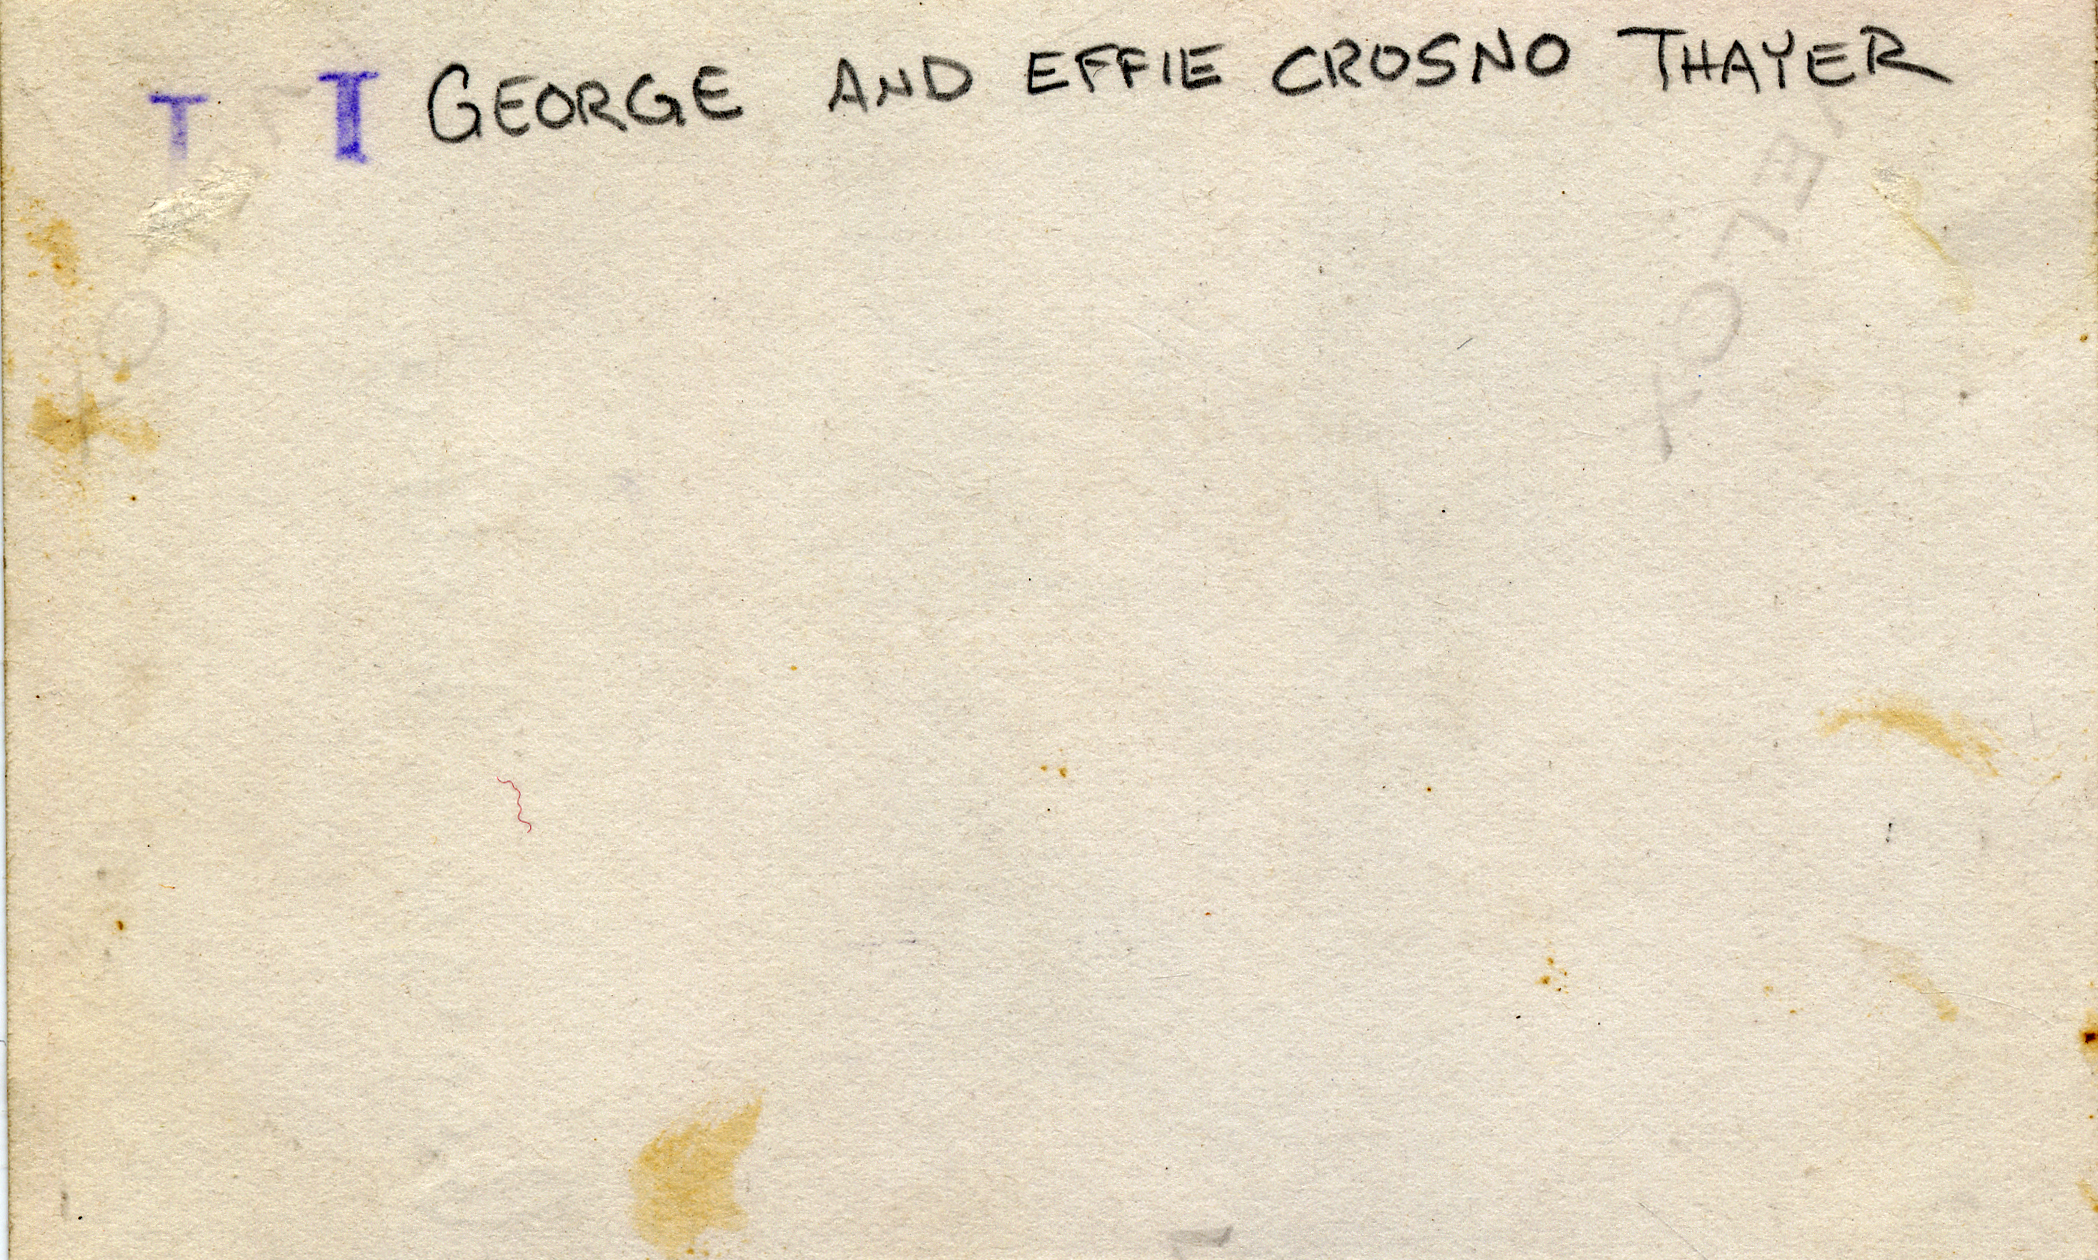 T I GEORGE AND EFFIE CROSNO THAYER